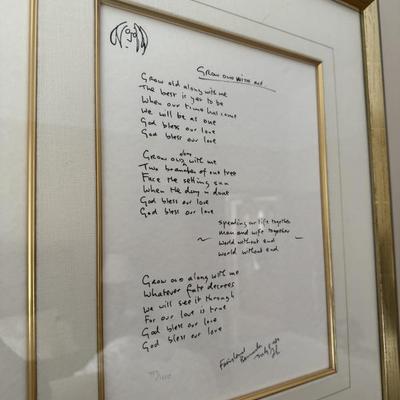 GROW OLD WITH ME
Grow old along with me
The best is yet to be
When our time has come
We will be as one
God bless our love
God bless our love
Grow old along with me
Two branches of one tree
Face the setting sun
When the day is done
God bless our love
God bless our love
spending our life together
man and wife together
world without end
world without end
Grow old along with me
Whatever fate decrees
We will see it through
For our love is true
God bless our love
God bless our love
Fairyland
Bermuda